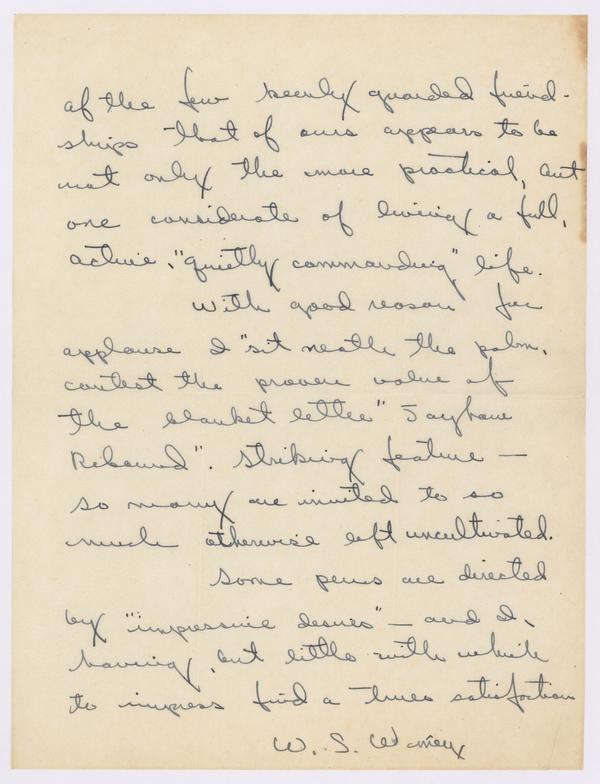 of the few keenly guarded friend-
ships that of ours appears to be
not only the more practical, but
one considerate of living a full,
active, "quietly commanding" life.
With good reason for
applause I "sit neath the palm,
contest the proven value of
the blanket letter" Jayhawk
Rebound". Striking feature —
so many are invited to so
much otherwise left uncultivated.
Some pens are directed
by "impressive desires" — and I,
having, but little with which
to impress find a true satisfaction
W. S.